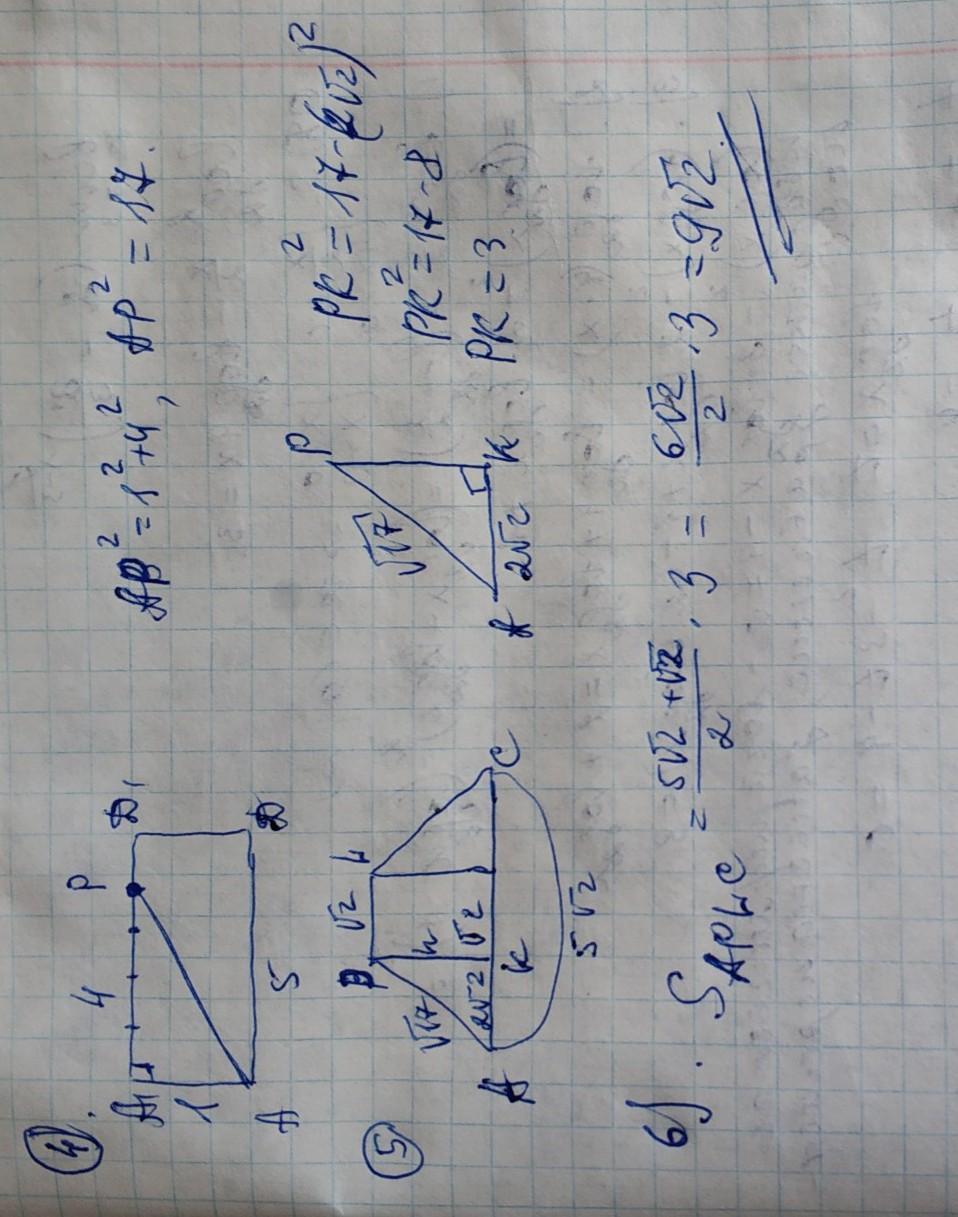 4.
P
A₁ 4 D₁
1
A 5 D
AP² = 1² + 4², AP² = 17.
5
P √2 L
√17 h
2√2 √2
A K C
5√2
P
√17
A 2√2 K
PK² = 17 - (2√2)²
PK² = 17 - 8
PK = 3
6). S APLC = (5√2 + √2)/2 · 3 = 6√2/2 · 3 = 9√2